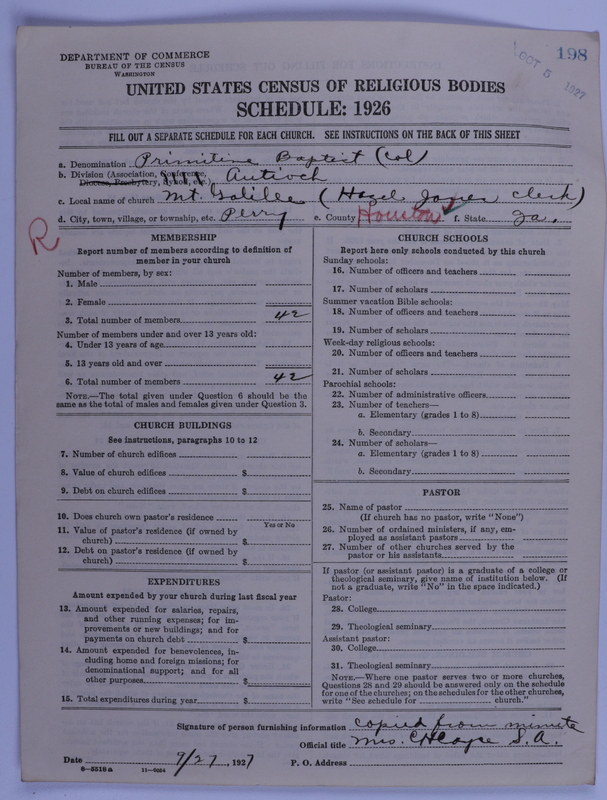 198
OCT 5 1927
DEPARTMENT OF COMMERCE
BUREAU OF THE CENSUS
WASHINGTON
UNITED STATES CENSUS OF RELIGIOUS BODIES
SCHEDULE: 1926
FILL OUT A SEPARATE SCHEDULE FOR EACH CHURCH. SEE INSTRUCTIONS ON THE BACK OF THIS SHEET
a. Denomination Primitive Baptist (Col)
b. Division (Association, Conference, Diocese, Presbytery, Synod, etc.) Antioch
c. Local name of church Mt. Galilee (Hazel Jones Clerk)
d. City, town, village, or township, etc. Perry e. County Houston f. State Ga.
R
MEMBERSHIP
Report number of members according to definition of
member in your church
Number of members, by sex:
1. Male
2. Female
3. Total number of members 42
Number of members under and over 13 years old:
4. Under 13 years of age
5. 13 years old and over
6. Total number of members 42
NOTE.—The total given under Question 6 should be
same as the total of males and females given under Question 3.
CHURCH BUILDINGS
See instructions, paragraphs 10 to 12
7. Number of church edifices
8. Value of church edifices $
9. Debt on church edifices $
10. Does church own pastor's residence
Yes or No
11. Value of pastor's residence (if owned by
church) $
12. Debt on pastor's residence (if owned by
church) $
EXPENDITURES
Amount expended by your church during last fiscal year
13. Amount expended for salaries, repairs,
and other running expenses; for im-
provements or new buildings; and for
payments on church debt $
14. Amount expended for benevolences, in-
cluding home and foreign missions; for
denominational support; and for all
other purposes $
15. Total expenditures during year $
CHURCH SCHOOLS
Report here only schools conducted by this church
Sunday schools:
16. Number of officers and teachers
17. Number of scholars
Summer vacation Bible schools:
18. Number of officers and teachers
19. Number of scholars
Week-day religious schools:
20. Number of officers and teachers
21. Number of scholars
Parochial schools:
22. Number of administrative officers
23. Number of teachers—
a. Elementary (grades 1 to 8)
b. Secondary
24. Number of scholars—
a. Elementary (grades 1 to 8)
b. Secondary
PASTOR
25. Name of pastor
(If church has no pastor, write "None")
26. Number of ordained ministers, if any, em-
ployed as assistant pastors
27. Number of other churches served by the
pastor or his assistants
If pastor (or assistant pastor) is a graduate of a college or
theological seminary, give name of institution below. (If
not a graduate, write "No" in the space indicated.)
Pastor:
28. College
29. Theological seminary
Assistant pastor:
30. College
31. Theological seminary
NOTE.—Where one pastor serves two or more churches,
Questions 28 and 29 should be answered only on the schedule
for one of the churches; on the schedules for the other churches,
write "See schedule for church."
Signature of person furnishing information copied from minute
Official title Mrs. S. A.
Date 9/27, 1927 P. O. Address
8—5518a 11—9664